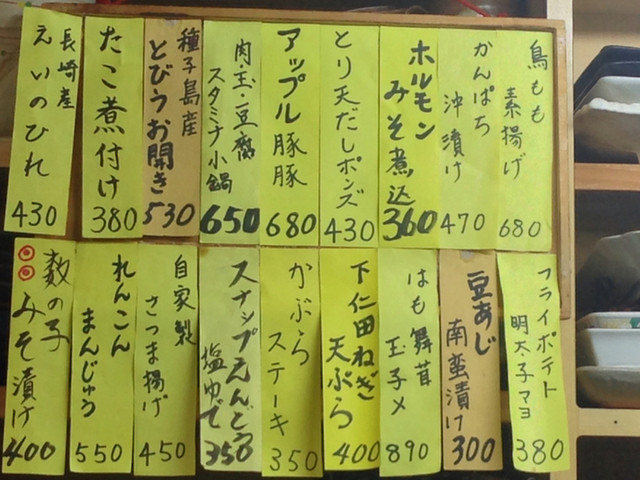 鳥もも
素揚げ
680
かんぱち
沖漬け
470
ホルモン
みそ煮込
360
とり天だしポンズ
430
アップル豚豚
680
肉玉・豆腐
スタミナ小鍋
650
種子島産
とびうお開き
530
たこ煮付け
380
長崎産
えいのひれ
430
フライポテト
明太子マヨ
380
豆あじ
南蛮漬け
300
はも舞茸
玉子〆
890
下仁田ねぎ
天ぷら
400
かぶら
ステーキ
350
スナップえんどう
塩ゆで
350
自家製
さつま揚げ
450
れんこん
まんじゅう
550
数の子
みそ漬け
400